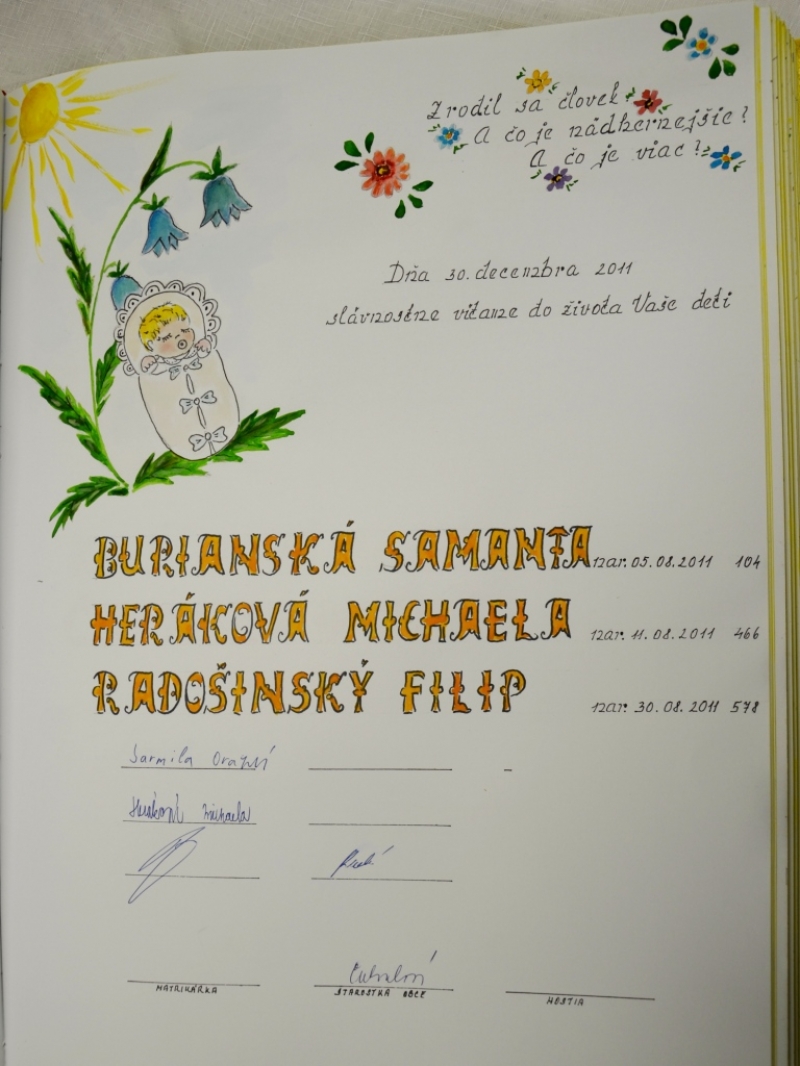 Zrodil sa človek!
A čo je nádhernejšie?
A čo je viac?
Dňa 30. decembra 2011
slávnostne vítame do života Vaše deti
BURIANSKÁ SAMANTA nar. 05.08.2011 104
HERÁKOVÁ MICHAELA nar. 11.08.2011 466
RADOŠINSKÝ FILIP nar. 30.08.2011 578
Jarmila
Heráková Michaela
MATRIKÁRKA STAROSTKA OBCE HOSTIA